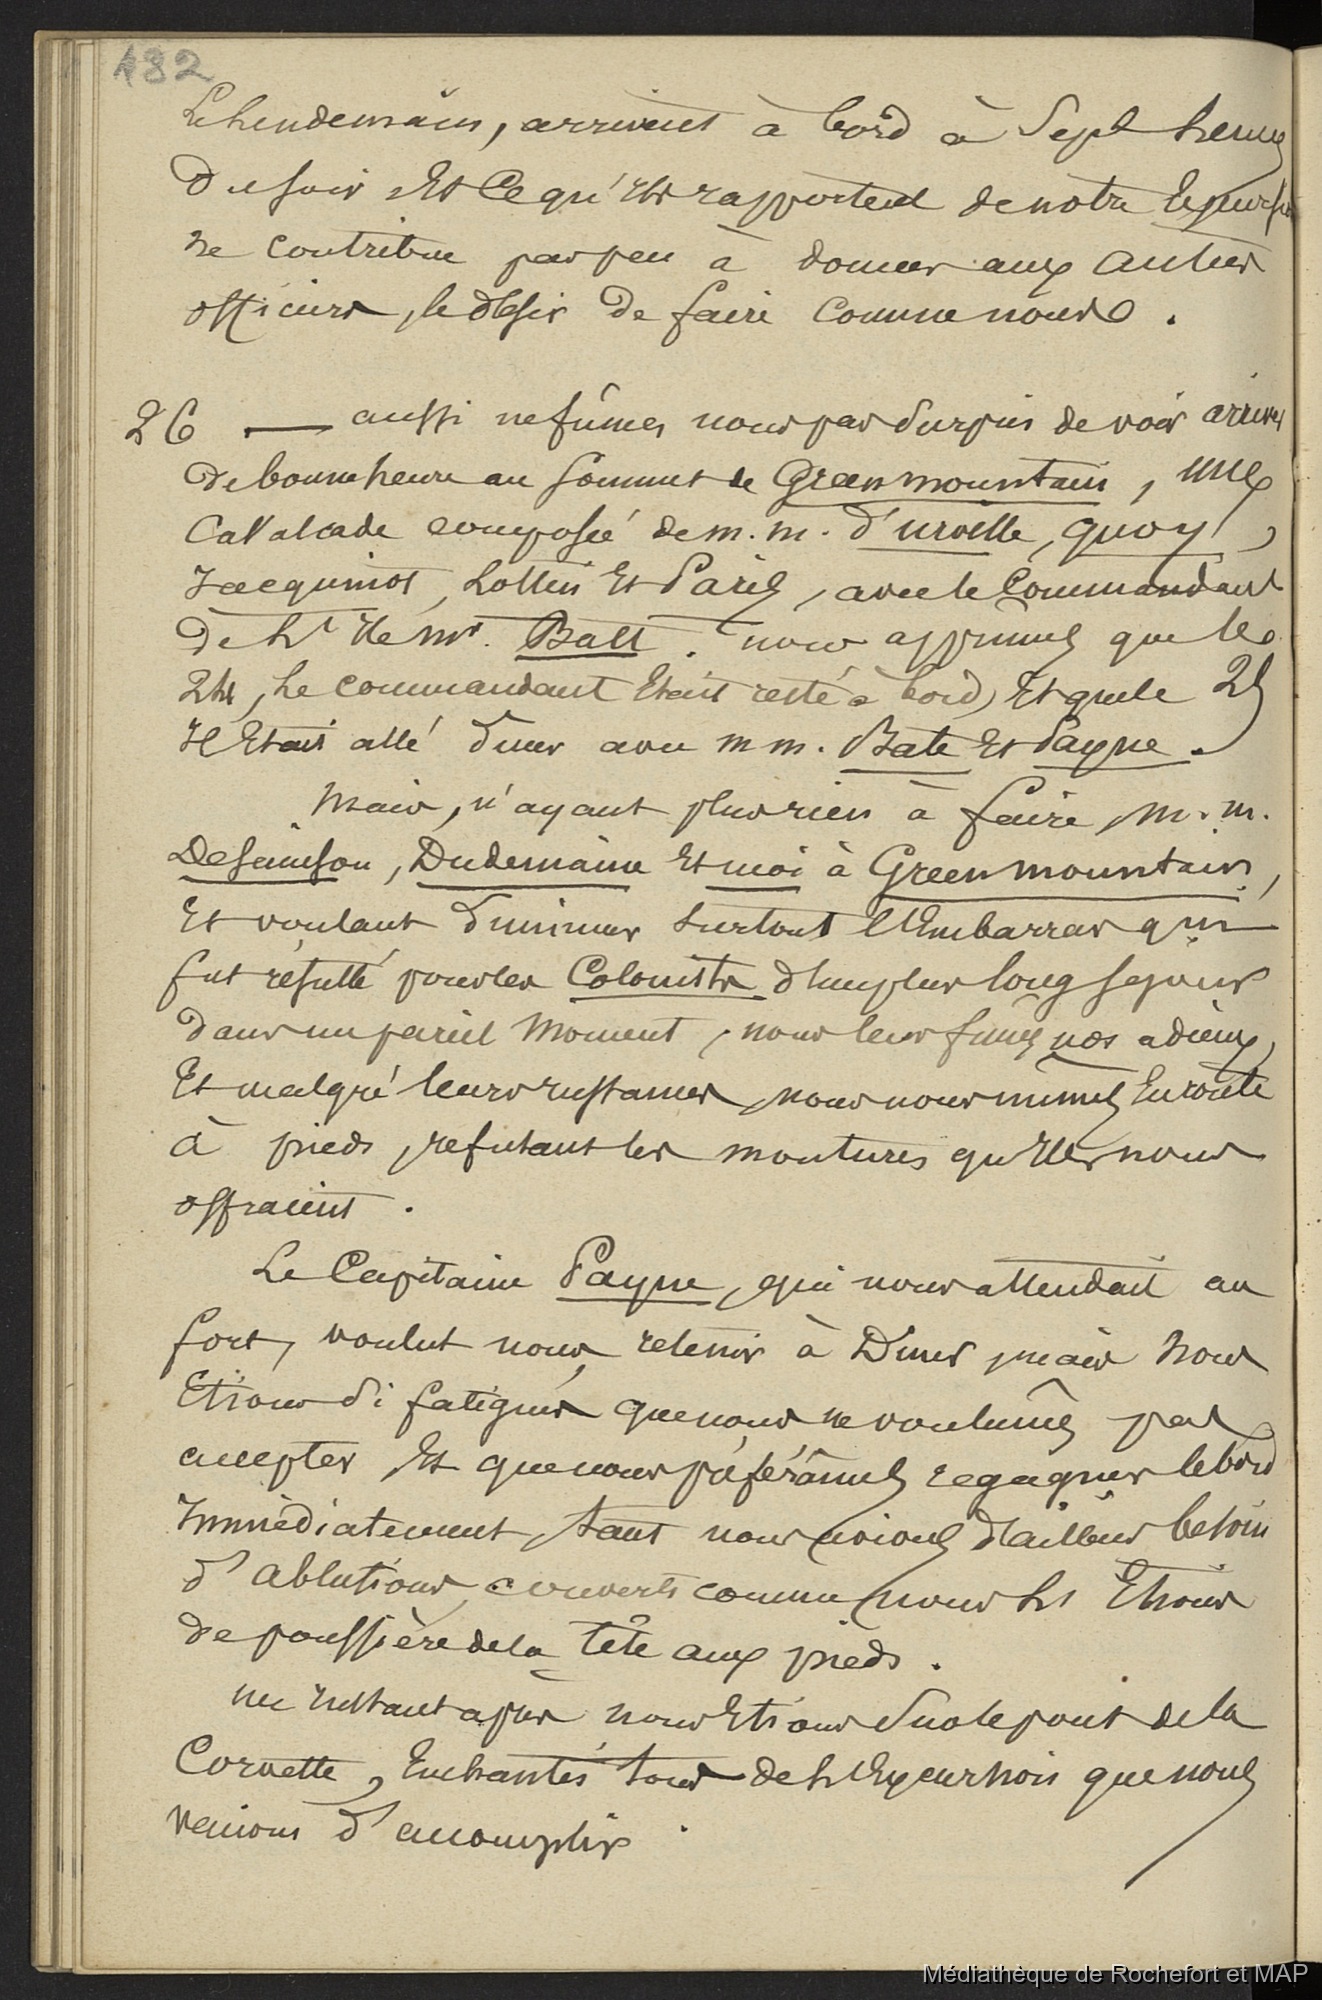 182
Le lendemain, arrivent à bord à Sept heures
Du soir, Et Ce qu'Ils rapportent de notre Excursion
ne contribue pas peu à donner aux autres
officiers, le désir De faire comme nous.
26 — aussi ne fûmes nous pas Surpris de voir arriver
De bonne heure au Sommet de Green mountain, une
Cavalcade composée de m. m. d'urville, quoy,
Jacquinot, Lottin Et Paris, avec le Commandant
De l'Ile Mr. Batt. nous apprimes que le
24, Le commandant Etait resté à bord, Et que le 25
Il Etait allé diner avec m m. Bate Et Payne.
Mais, n'ayant plus rien à faire, m. m.
De Sainson, Dudemaine Et moi à Green mountain,
Et voulant diminuer surtout l'Embarras qui
fut résulté pour les Colonists d'un plus long séjour
dans un pareil Moment, nous leur fimes nos adieux,
Et malgré leurs instances, nous nous mimes En route
à pieds, refusant les montures qu'Ils nous
offraient.
Le Capitaine Payne, qui nous attendait au
fort, voulut nous retenir à Diner, mais Nous
Etions Si fatigués que nous ne voulûmes pas
accepter Et que nous préférâmes regagner le bord
Immédiatement, tant nous avions d'ailleurs besoin
d'ablutions, couverts comme nous les Etions
De poussière de la tête aux pieds.
un Instant après nous Etions Sur le pont de la
Corvette, Enchantés tous de l'Excursion que nous
venions d'accomplir.
Médiathèque de Rochefort et MAP